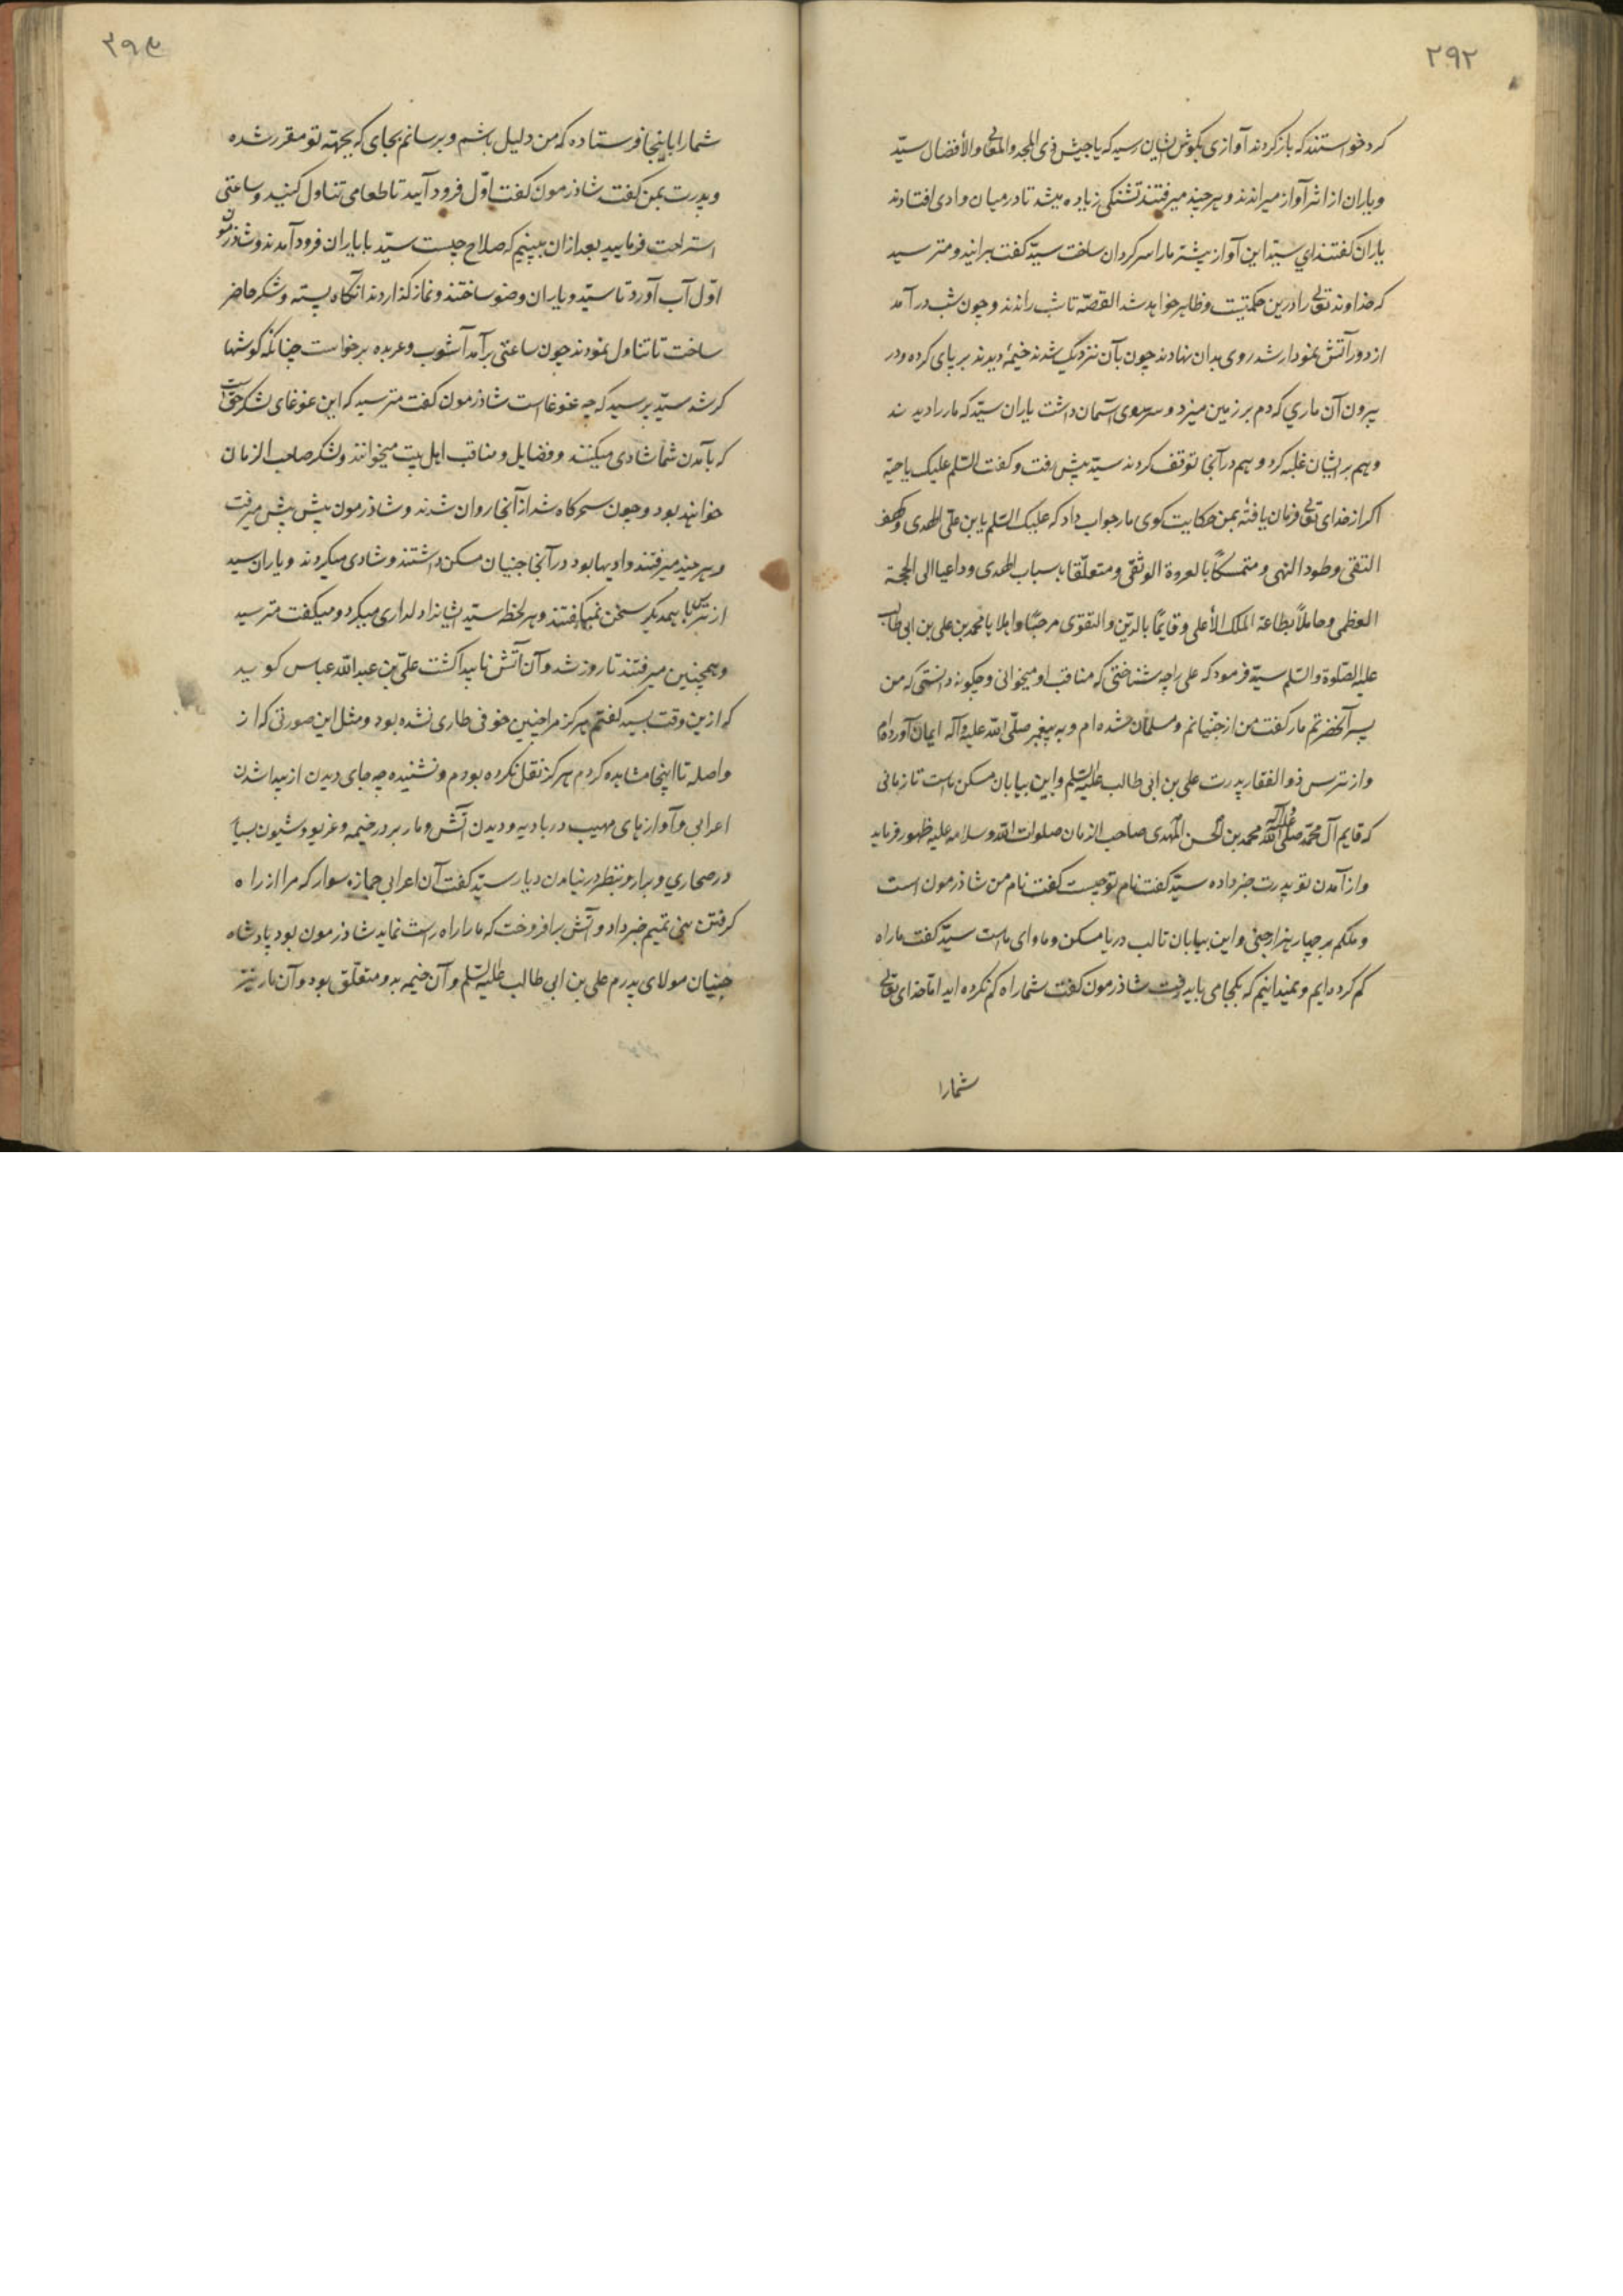 ۲۹۲
کرد خواستند که باز کردند آوازی بکوش ایشان رسید که یا جیش ذی المجد والمعالی والأفضال سیّد
و یاران از اثر آواز میراندند و هر چند میرفتند تشنکی زیاده میشد تا در میان وادی افتادند
یاران کفتند ای سیّد این آواز بیشتر ما را سر کردان ساخت سیّد کفت برانید و مترسید
که خداوند تعالی را درین حکمتیست و ظاهر خواهد شد القصّه تا شب راندند و چون شب در آمد
از دور آتش نمودار شد روی بدان نهادند چون بآن نزدیک شدند خیمهٔ دیدند بر پای کرده و در
بیرون آن ماری که دم بر زمین میزد و سر سوی آسمان داشت یاران سیّد که مار را دیدند
وهم بر ایشان غلبه کرد و هم در آنجا توقف کردند سیّد پیش رفت و کفت السّلم علیک یا حیّه
اکر از خدای تعالی فرمان یافتهٔ بمن حکایت کوی مار جواب داد که علیک السّلم یا بن علّی الهدی و کهف
التقی و طود النهی و متمسکًا بالعروة الوثقی و متعلّقا باسباب الهدی و داعیا الی الحجة
العظمی و عاملًا بطاعة الملک الأعلی و قایمًا بالدّین والتقوی مرحبًا واهلا یا محمد بن علی بن ابی طالب
علیه الصّلوة والسّلم سیّد فرمود که علی را چه شناختی که مناقب او میخوانی و چکونه دانستی که من
پسر آنحضرتم مار کفت من از جنّیانم و مسلمان شده ام و به پیغمبر صلّی اللّه علیه وآله ایمان آورده ام
و از ترس ذوالفقار پدرت علی بن ابی طالب علیه السّلم و این بیابان مسکن ماست تا زمانی
که قایم آل محمّد صلّی اللّه علیه وآله محمد بن الحسن المهدی صاحب الزمان صلوات اللّه و سلامه علیه ظهور فرماید
و از آمدن تو پدرت خبر داده سیّد کفت نام تو چیست کفت نام من شاذرمون است
و ملکم بر چهار هزار جنّی و این بیابان تا لب دریا مسکن و ماوای ماست سیّد کفت ما راه
کم کرده ایم و نمیدانیم که بکجا می باید رفت شاذرمون کفت شما راه کم نکرده اید اما خدای تعالی
شما را
شما را باینجا فرستاده که من دلیل باشم و برسانم بجای که بجهته تو مقرر شده
و پدرت بمن کفت شاذرمون کفت اوّل فرود آیید تا طعامی تناول کنید و ساعتی
استراحت فرمایید بعد از ان ببینیم که صلاح چیست سیّد با یاران فرود آمدند و شاذرمون
اوّل آب آورد تا سیّد و یاران وضو ساختند و نماز کذاردند آنکاه پسته و شکر حاضر
ساخت تا تناول نمودند چون ساعتی بر آمد آشوب و عربده برخواست چنانکه کوشها
کر شد سیّد پرسید که چه غوغاست شاذرمون کفت مترسید که این غوغای لشکر جنّ است
که بآمدن شما شادی میکنند و فضایل و مناقب اهل بیت میخوانند و لشکر صاحب الزمان
خواهند بود و چون سحرکاه شد از آنجا روان شدند و شاذرمون پیش پیش میرفت
و هر چند میرفتند وادیها بود در آنجا جنیان مسکن داشتند و شادی میکردند و یاران سید
از ترس با یکدیکر سخن نمیکفتند و هر لحظه سیّد ایشانرا دلداری میکرد و میکفت مترسید
و همچنین میرفتند تا روز شد و آن آتش ناپیدا کشت علّی بن عبد اللّه عباس کوید
که ازین وقت بسید کفتم هرکز مرا چنین خوفی طاری نشده بود و مثل این صورتی که از
واصله تا اینجا مشاهده کردم هرکز نقل نکرده بودم و نشنیده چه جای دیدن از پیدا شدن
اعرابی و آوازهای مهیب در بادیه و دیدن آتش و مار بر در خیمه و غریو و شیون بسیار
در صحاری و براری و بنظر در نیامدن دیار سیّد کفت آن اعرابی جمازه سوار که مرا از راه
کرفتن بنی تمیم خبر داد و آتش برافروخت که ما را راه راست نماید شاذرمون بود پادشاه
جنیان مولای پدرم علی بن ابی طالب علیه السّلم و آن خیمه بدو متعلّق بود و آن مار نیز